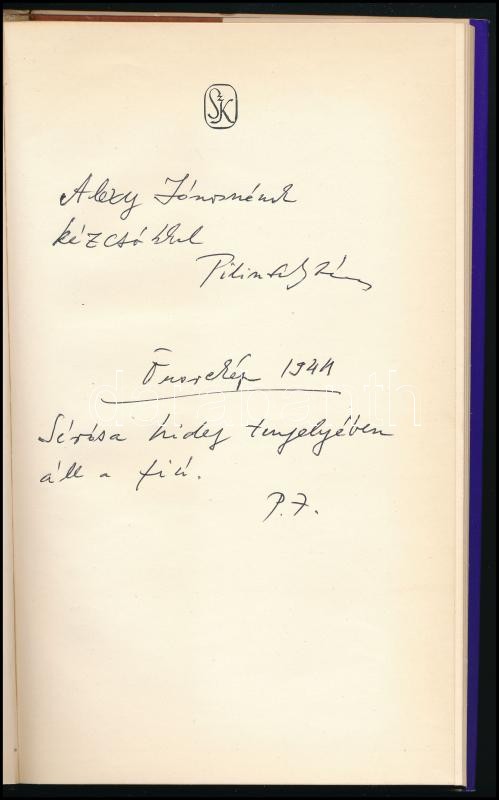 SzK
Alexy Jánosnénak
kézcsókkal
Pilinszky János
Önarckép 1944
Sírása hideg tengelyében
áll a fiú.
P. J.